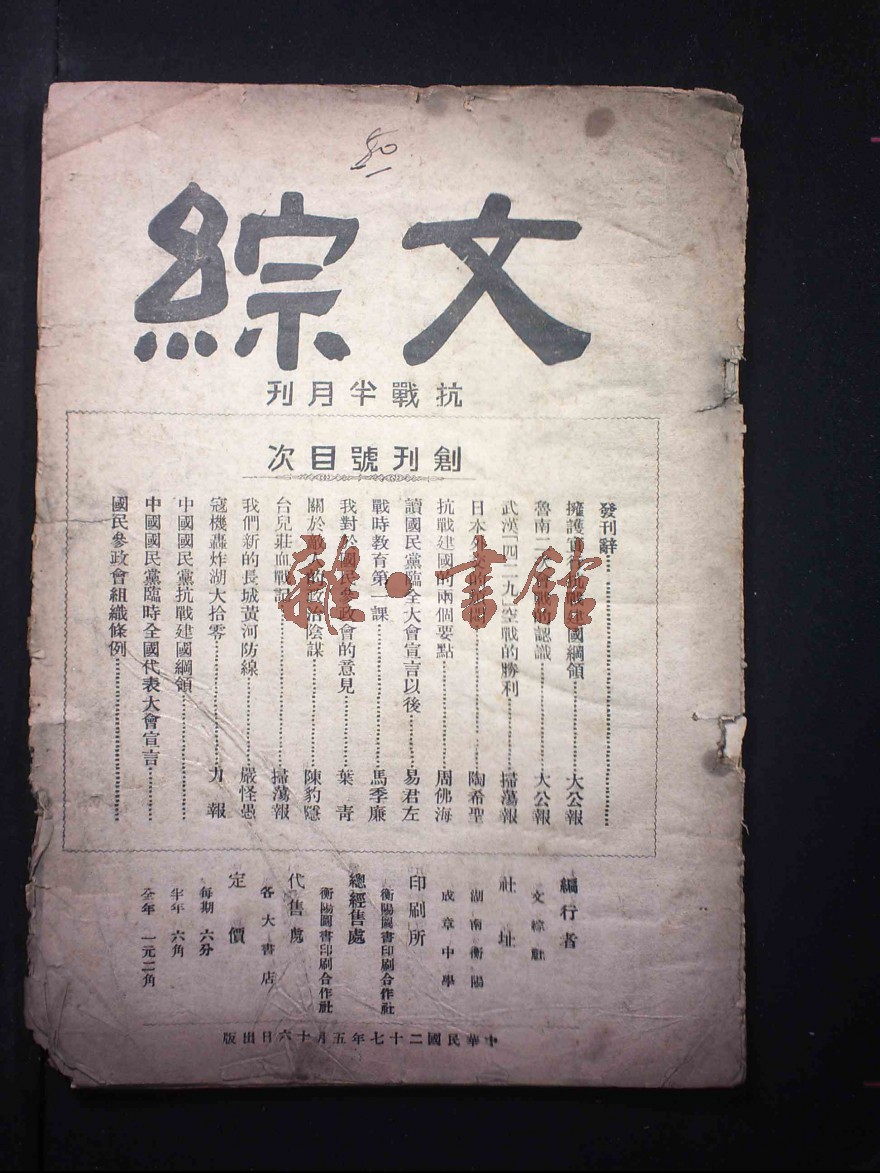 80
文綜
抗戰半月刊
創刊號目次
發刊辭
擁護 抗戰建國綱領 大公報
魯南二次會戰的認識 大公報
武漢「四二九」空戰的勝利 掃蕩報
日本外交的 陶希聖
抗戰建國的兩個要點 周佛海
讀國民黨臨全大會宣言以後 易君左
戰時教育第一課 馬季廉
我對於國民參政會的意見 葉青
關於敵人的政治陰謀 陳豹隱
台兒莊血戰記 掃蕩報
我們新的長城黃河防線 嚴怪愚
寇機轟炸湖大拾零 力報
中國國民黨抗戰建國綱領
中國國民黨臨時全國代表大會宣言
國民參政會組織條例
編行者
文綜社
社址
湖南衡陽
成章中學
印刷所
衡陽圖書印刷合作社
總經售處
衡陽圖書印刷合作社
代售處
各大書店
定價
每期 六分
半年 六角
全年 一元二角
中華民國二十七年五月十六日出版
雜·書館